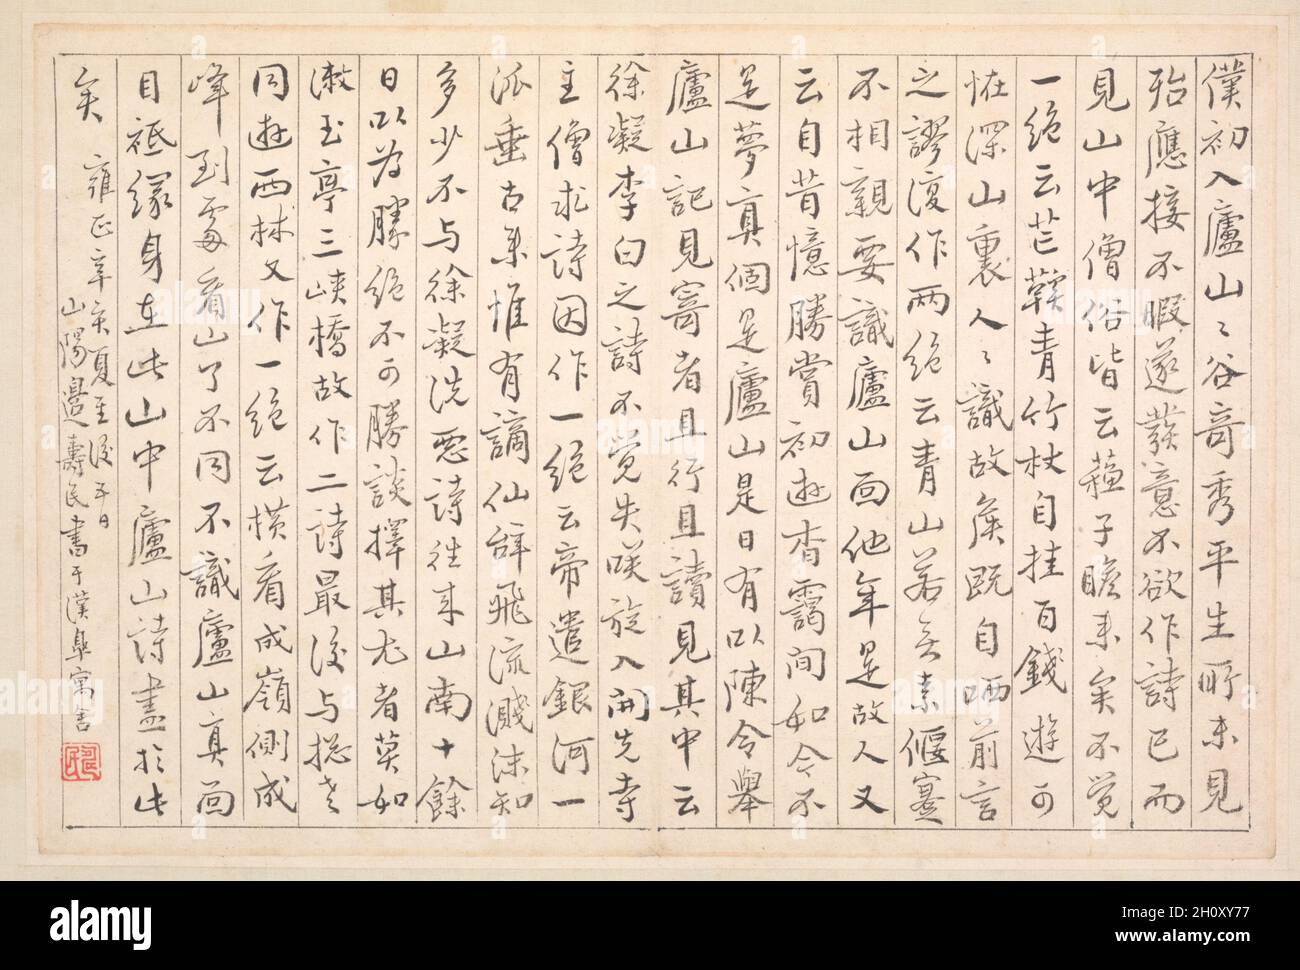 僕初入廬山山谷奇秀平生所未見
殆應接不暇遂發意不欲作詩已而
見山中僧俗皆云蘓子瞻来矣不覺
一絶云芒鞵青竹杖自挂百錢遊可
怪深山裏人〻識故矦既自哂前言
之謬復作兩絶云青山若無素偃蹇
不相親要識廬山面他年是故人又
云自昔憶勝賞初遊杳靄間如今不
是夢真個是廬山是日有以陳令舉
廬山記見寄者且行且讀見其中云
徐凝李白之詩不覺失咲旋入開先寺
主僧求詩因作一絶云帝遣銀河一
派垂古来惟有謫仙辭飛流濺沫知
多少不与徐凝洗惡詩往来山南十餘
日以為勝絶不可勝談擇其尤者莫如
漱玉亭三峽橋故作二詩最後与揔老
同遊西林又作一絶云橫看成嶺側成
峰到處看山了不同不識廬山真面
目祇緣身在此山中廬山詩盡於此
矣
雍正辛亥夏至後五日
山陽邊壽民書于漢皐寓舍
alamy
Image ID: 2H0XY77
www.alamy.com